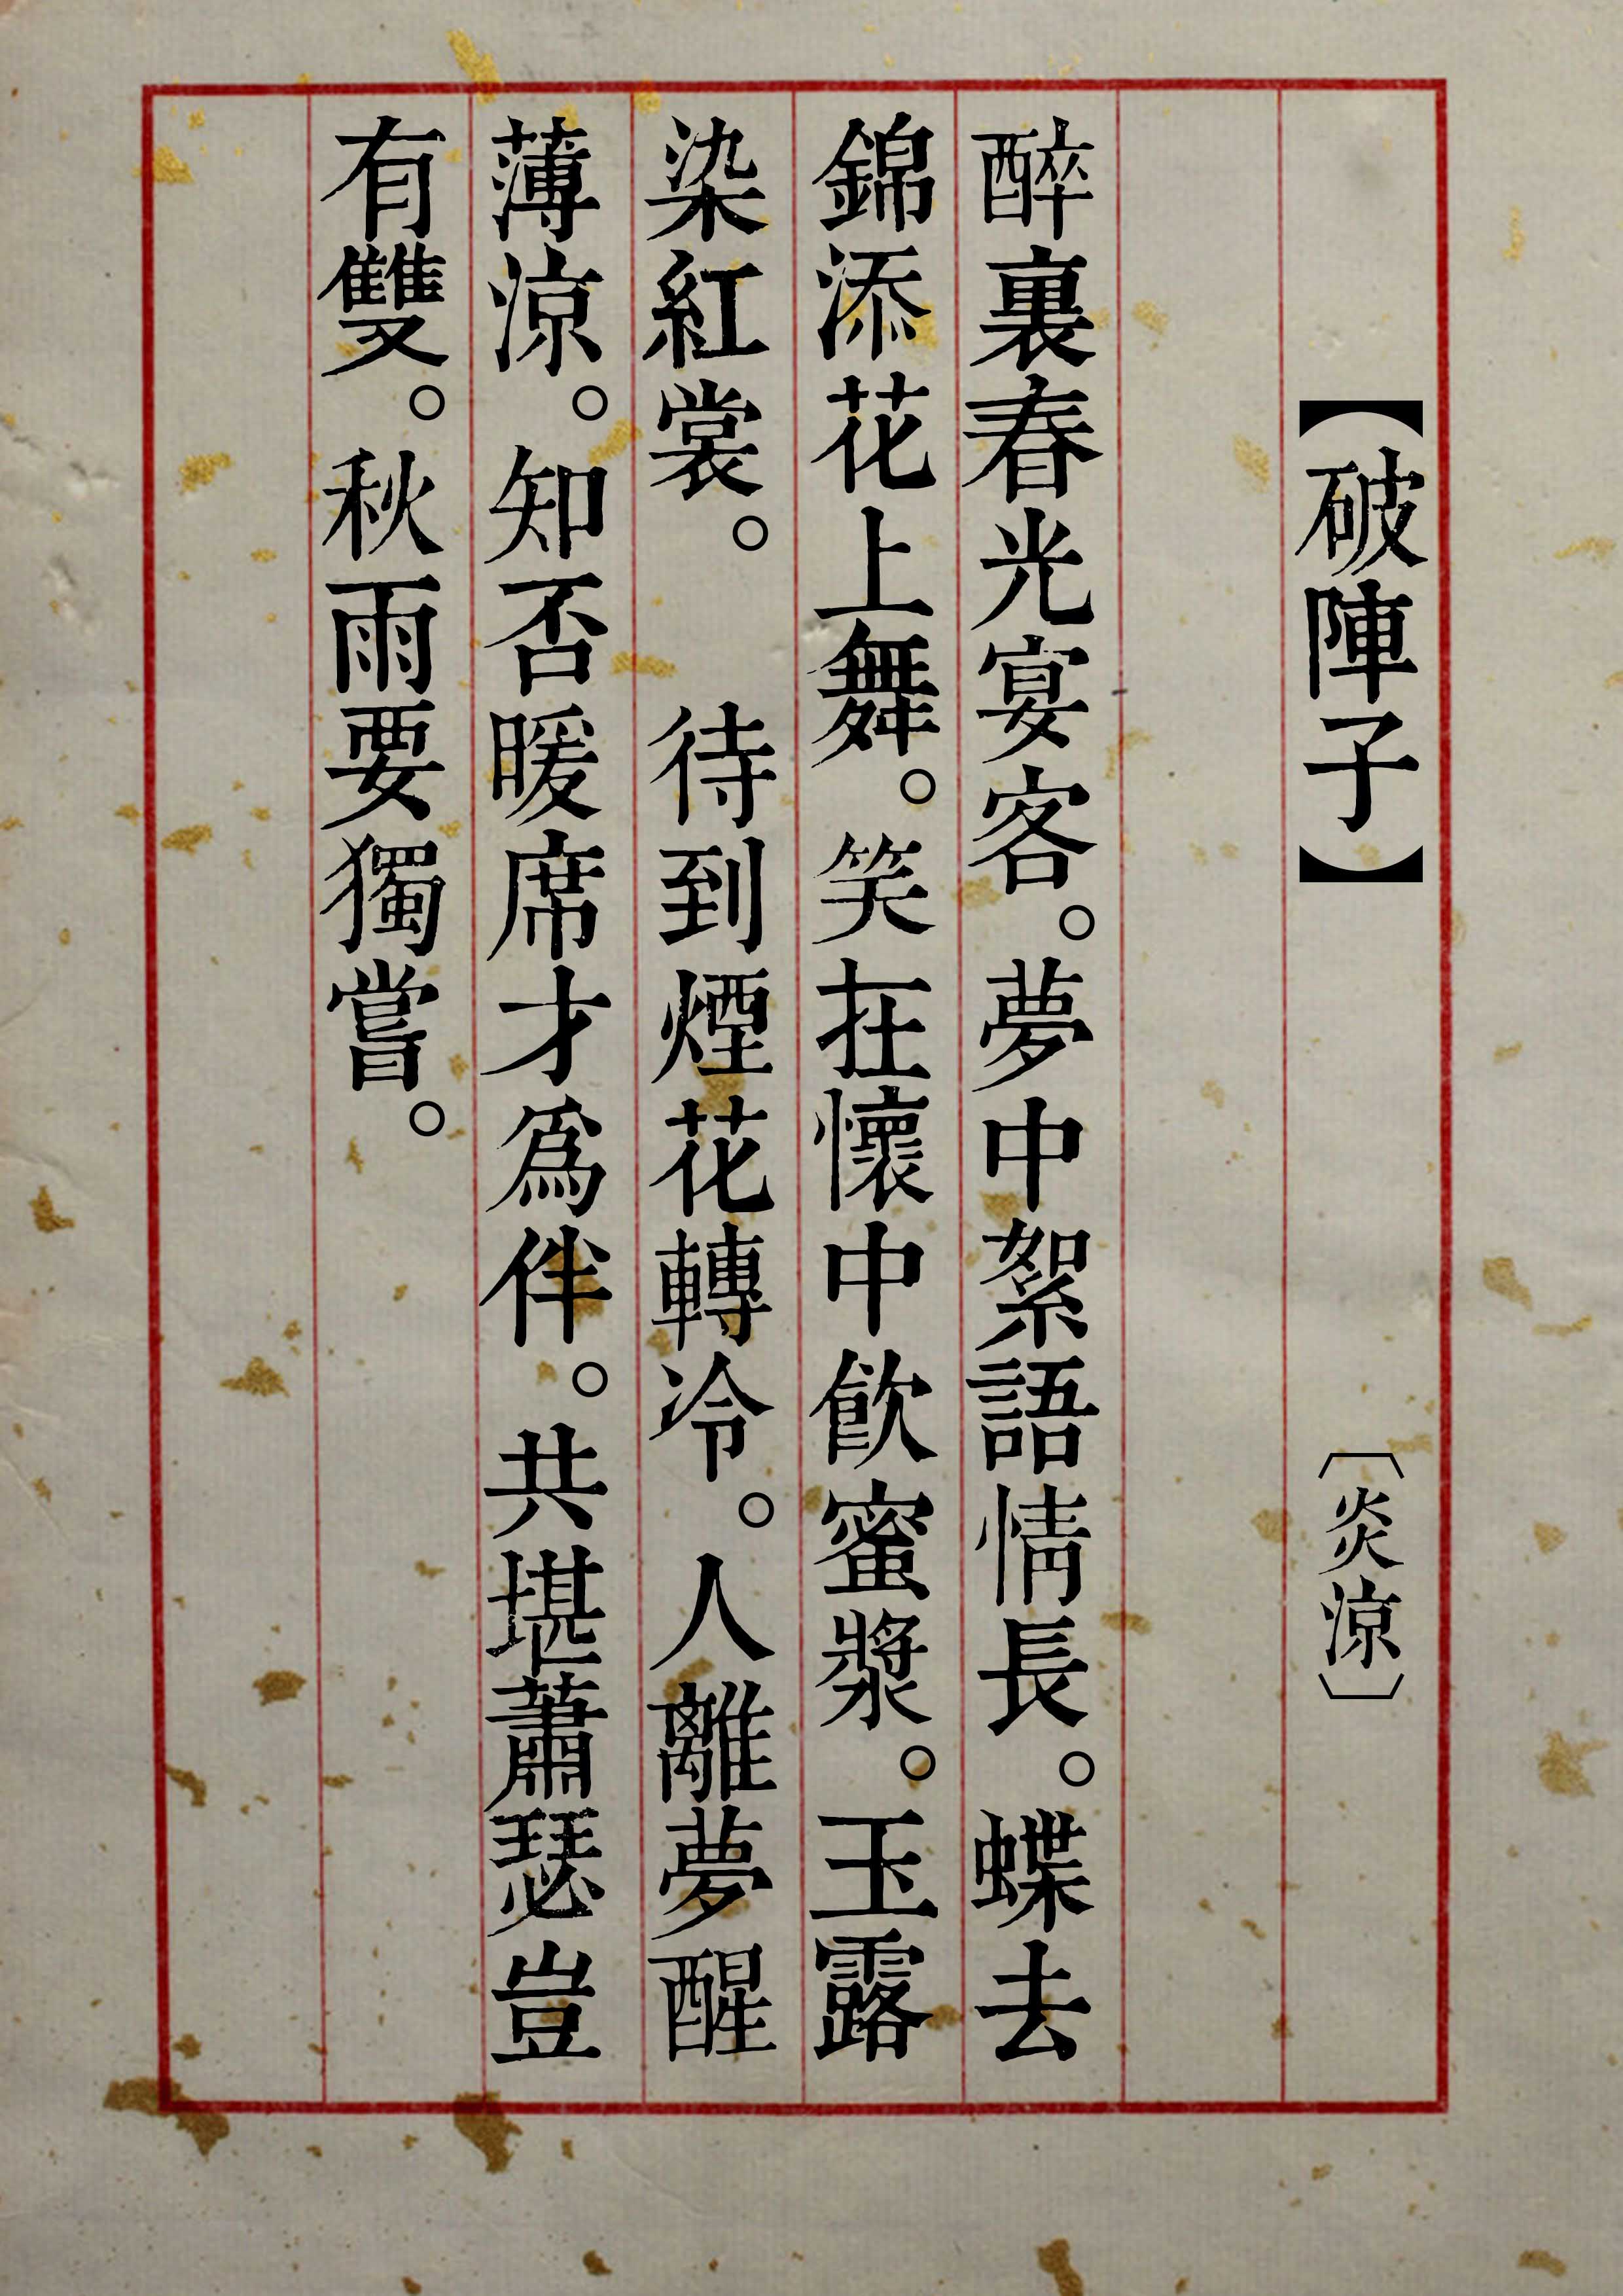 【破陣子】　〔炎涼〕
醉裏春光宴客。夢中絮語情長。蝶去
錦添花上舞。笑在懷中飲蜜漿。玉露
染紅裳。　待到煙花轉冷。人離夢醒
薄涼。知否暖席才爲伴。共堪蕭瑟豈
有雙。秋雨要獨嘗。